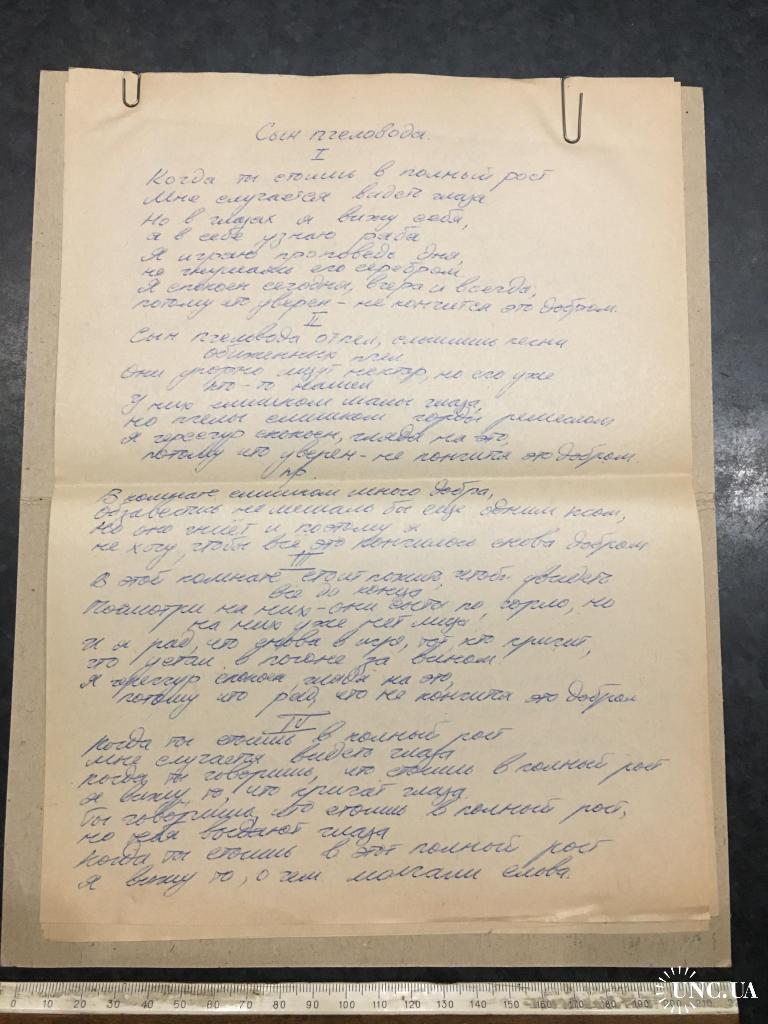 Сын пчеловода.
I
Когда ты стоишь в полный рост
Мне случается видеть глаза
Но в глазах я вижу себя,
а в себе узнаю раба
Я играю проповедь дня,
не глушами его серебром
Я спокоен сегодня, вчера и всегда,
потому что уверен - не кончится это добром.
II
Сын пчеловода отпел, слышишь песни
обиженных пчел
Они упорно ищут нектар, но его уже
кто-то нашел
У них слишком малы глаза,
но пчелы слишком горды ремеслом
Я чересчур спокоен, глядя на это,
потому что уверен - не кончится это добром.
пр.
В комнате слишком много добра,
обзавестись не мешало бы еще одним псом,
Но оно гниёт и поэтому я
не хочу, чтобы всё это кончилось снова добром
III
В этой комнате стоит пожить, чтоб увидеть
все до конца
Посмотри на них - они сыты по горло, но
на них уже нет лица
И я рад, что снова в игре, тот, кто кричит,
что устал в погоне за вином.
Я чересчур спокоен, глядя на это,
потому что рад, что не кончится это добром
IV
Когда ты стоишь в полный рост
Мне случается видеть глаза
Когда ты говоришь, что стоишь в полный рост
Я вижу то, что кричат глаза
Ты говоришь, что стоишь в полный рост,
но тебя выдают глаза
Когда ты стоишь в этот полный рост
Я вижу то, о чем молчали слова.
0 10 20 30 40 50 60 70 80 90 100 110 120 130 140 150 160 170 180 190 200 210
UNC.UA